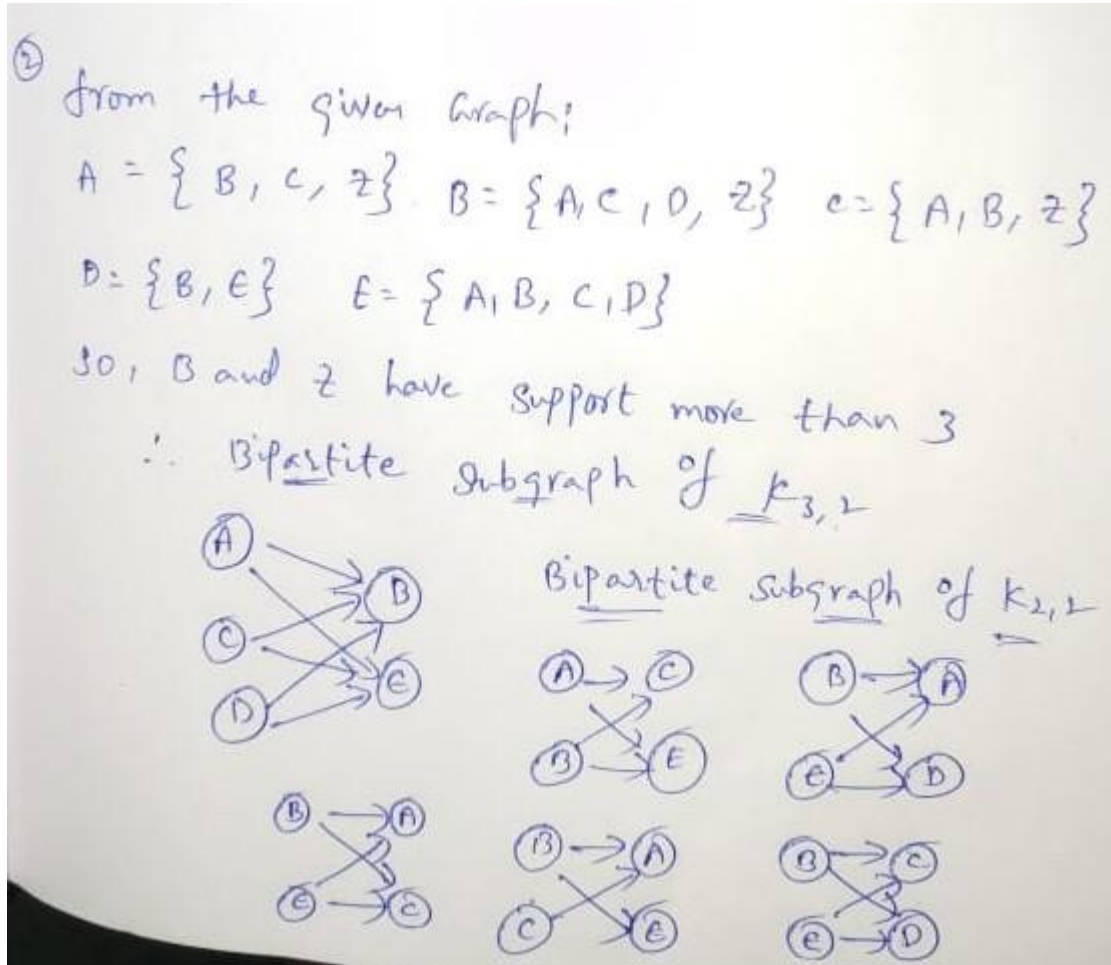 ②
from the given Graph;
A = { B, C, Z} B = {A, C, D, Z} C = { A, B, Z}
D = {B, E} E = { A, B, C, D}
So, B and Z have support more than 3
∴ Bipartite Subgraph of K3,2
Bipartite subgraph of K2,2
A B
C
D E
A C B A
B E E D
B A B A B C
E C C E E D